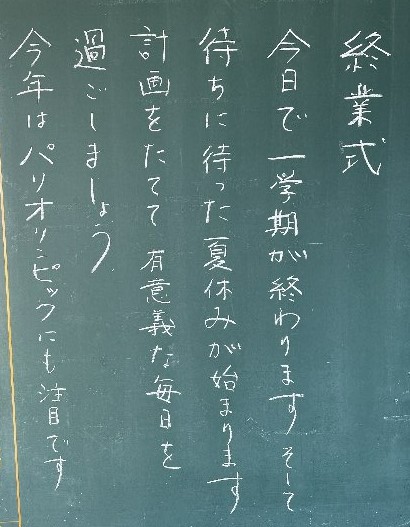 終業式
今日で一学期が終わります そして
待ちに待った夏休みが始まります
計画をたてて 有意義な毎日を
過ごしましょう
今年はパリオリンピックにも注目です